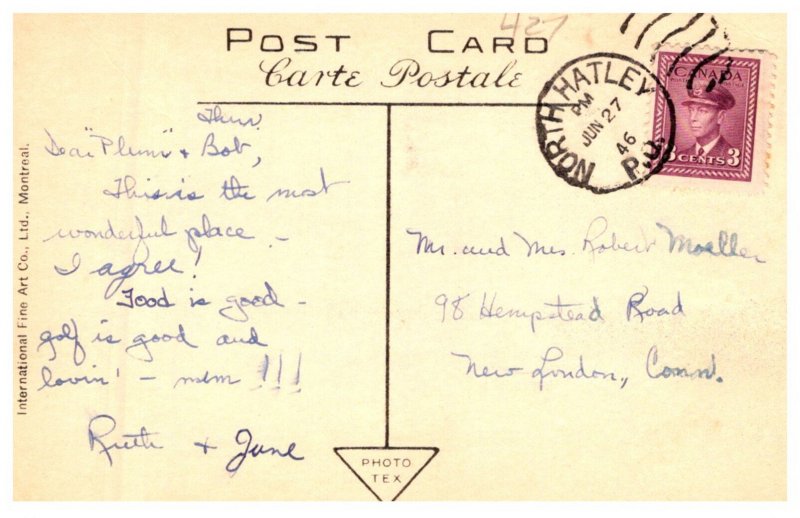 427
POST CARD
Carte Postale
NORTH HATLEY P.O.
PM
JUN 27
46
CANADA
3 CENTS 3
Thur.
Dear "Plum" + Bob,
This is the most
wonderful place -
I agree!
Food is good -
golf is good and
lovin' - mmm !!!
Ruth + June
Mr. and Mrs. Robert Moeller
98 Hempstead Road
New London, Conn.
International Fine Art Co., Ltd., Montreal.
PHOTO
TEX